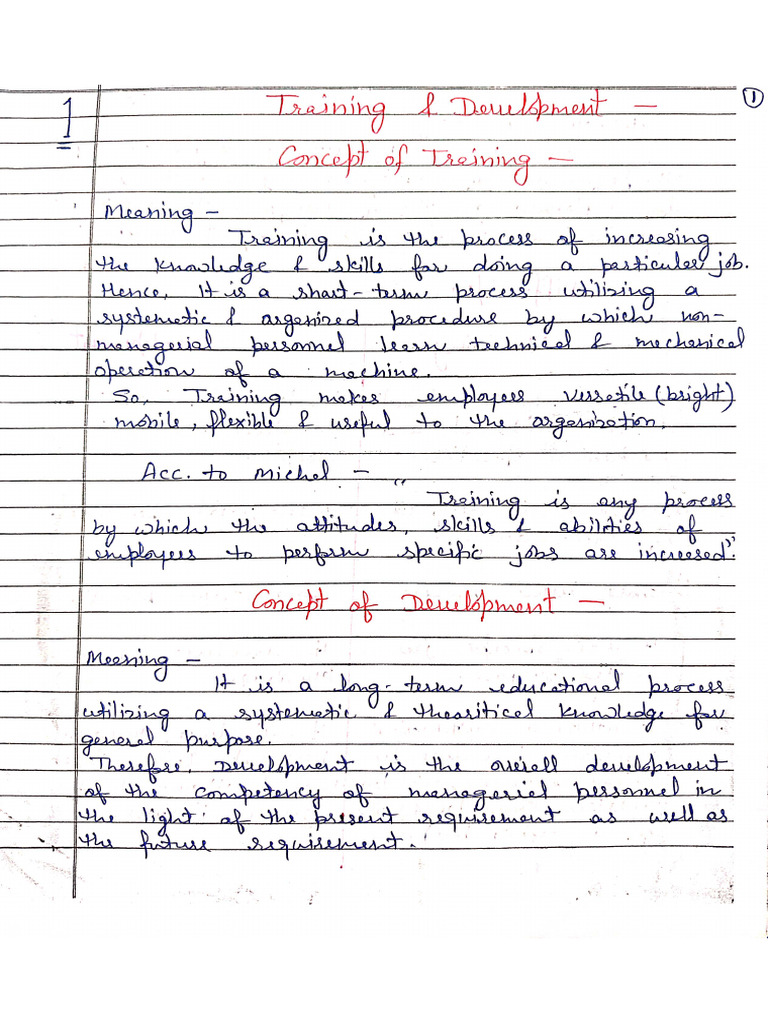 1
Training & Development — ①
Concept of Training —
Meaning —
Training is the process of increasing
the knowledge & skills for doing a particular job.
Hence, It is a short-term process utilizing a
systematic & organized procedure by which non-
managerial personnel learn technical & mechanical
operation of a machine.
So, Training makes employees versatile (bright)
mobile, flexible & useful to the organization.
Acc. to Michel —
"Training is any process
by which the attitudes, skills & abilities of
employees to perform specific jobs are increased".
Concept of Development —
Meaning —
It is a long-term educational process
utilizing a systematic & theoritical knowledge for
general purpose.
Therefore, Development is the overall development
of the competency of managerial personnel in
the light of the present requirement as well as
the future requirement.